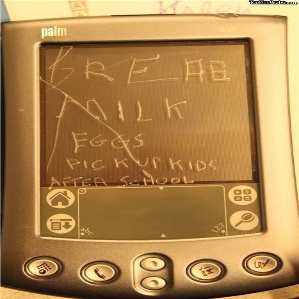 palm
BREAD
MILK
EGGS
PICK UP KIDS
AFTER SCHOOL